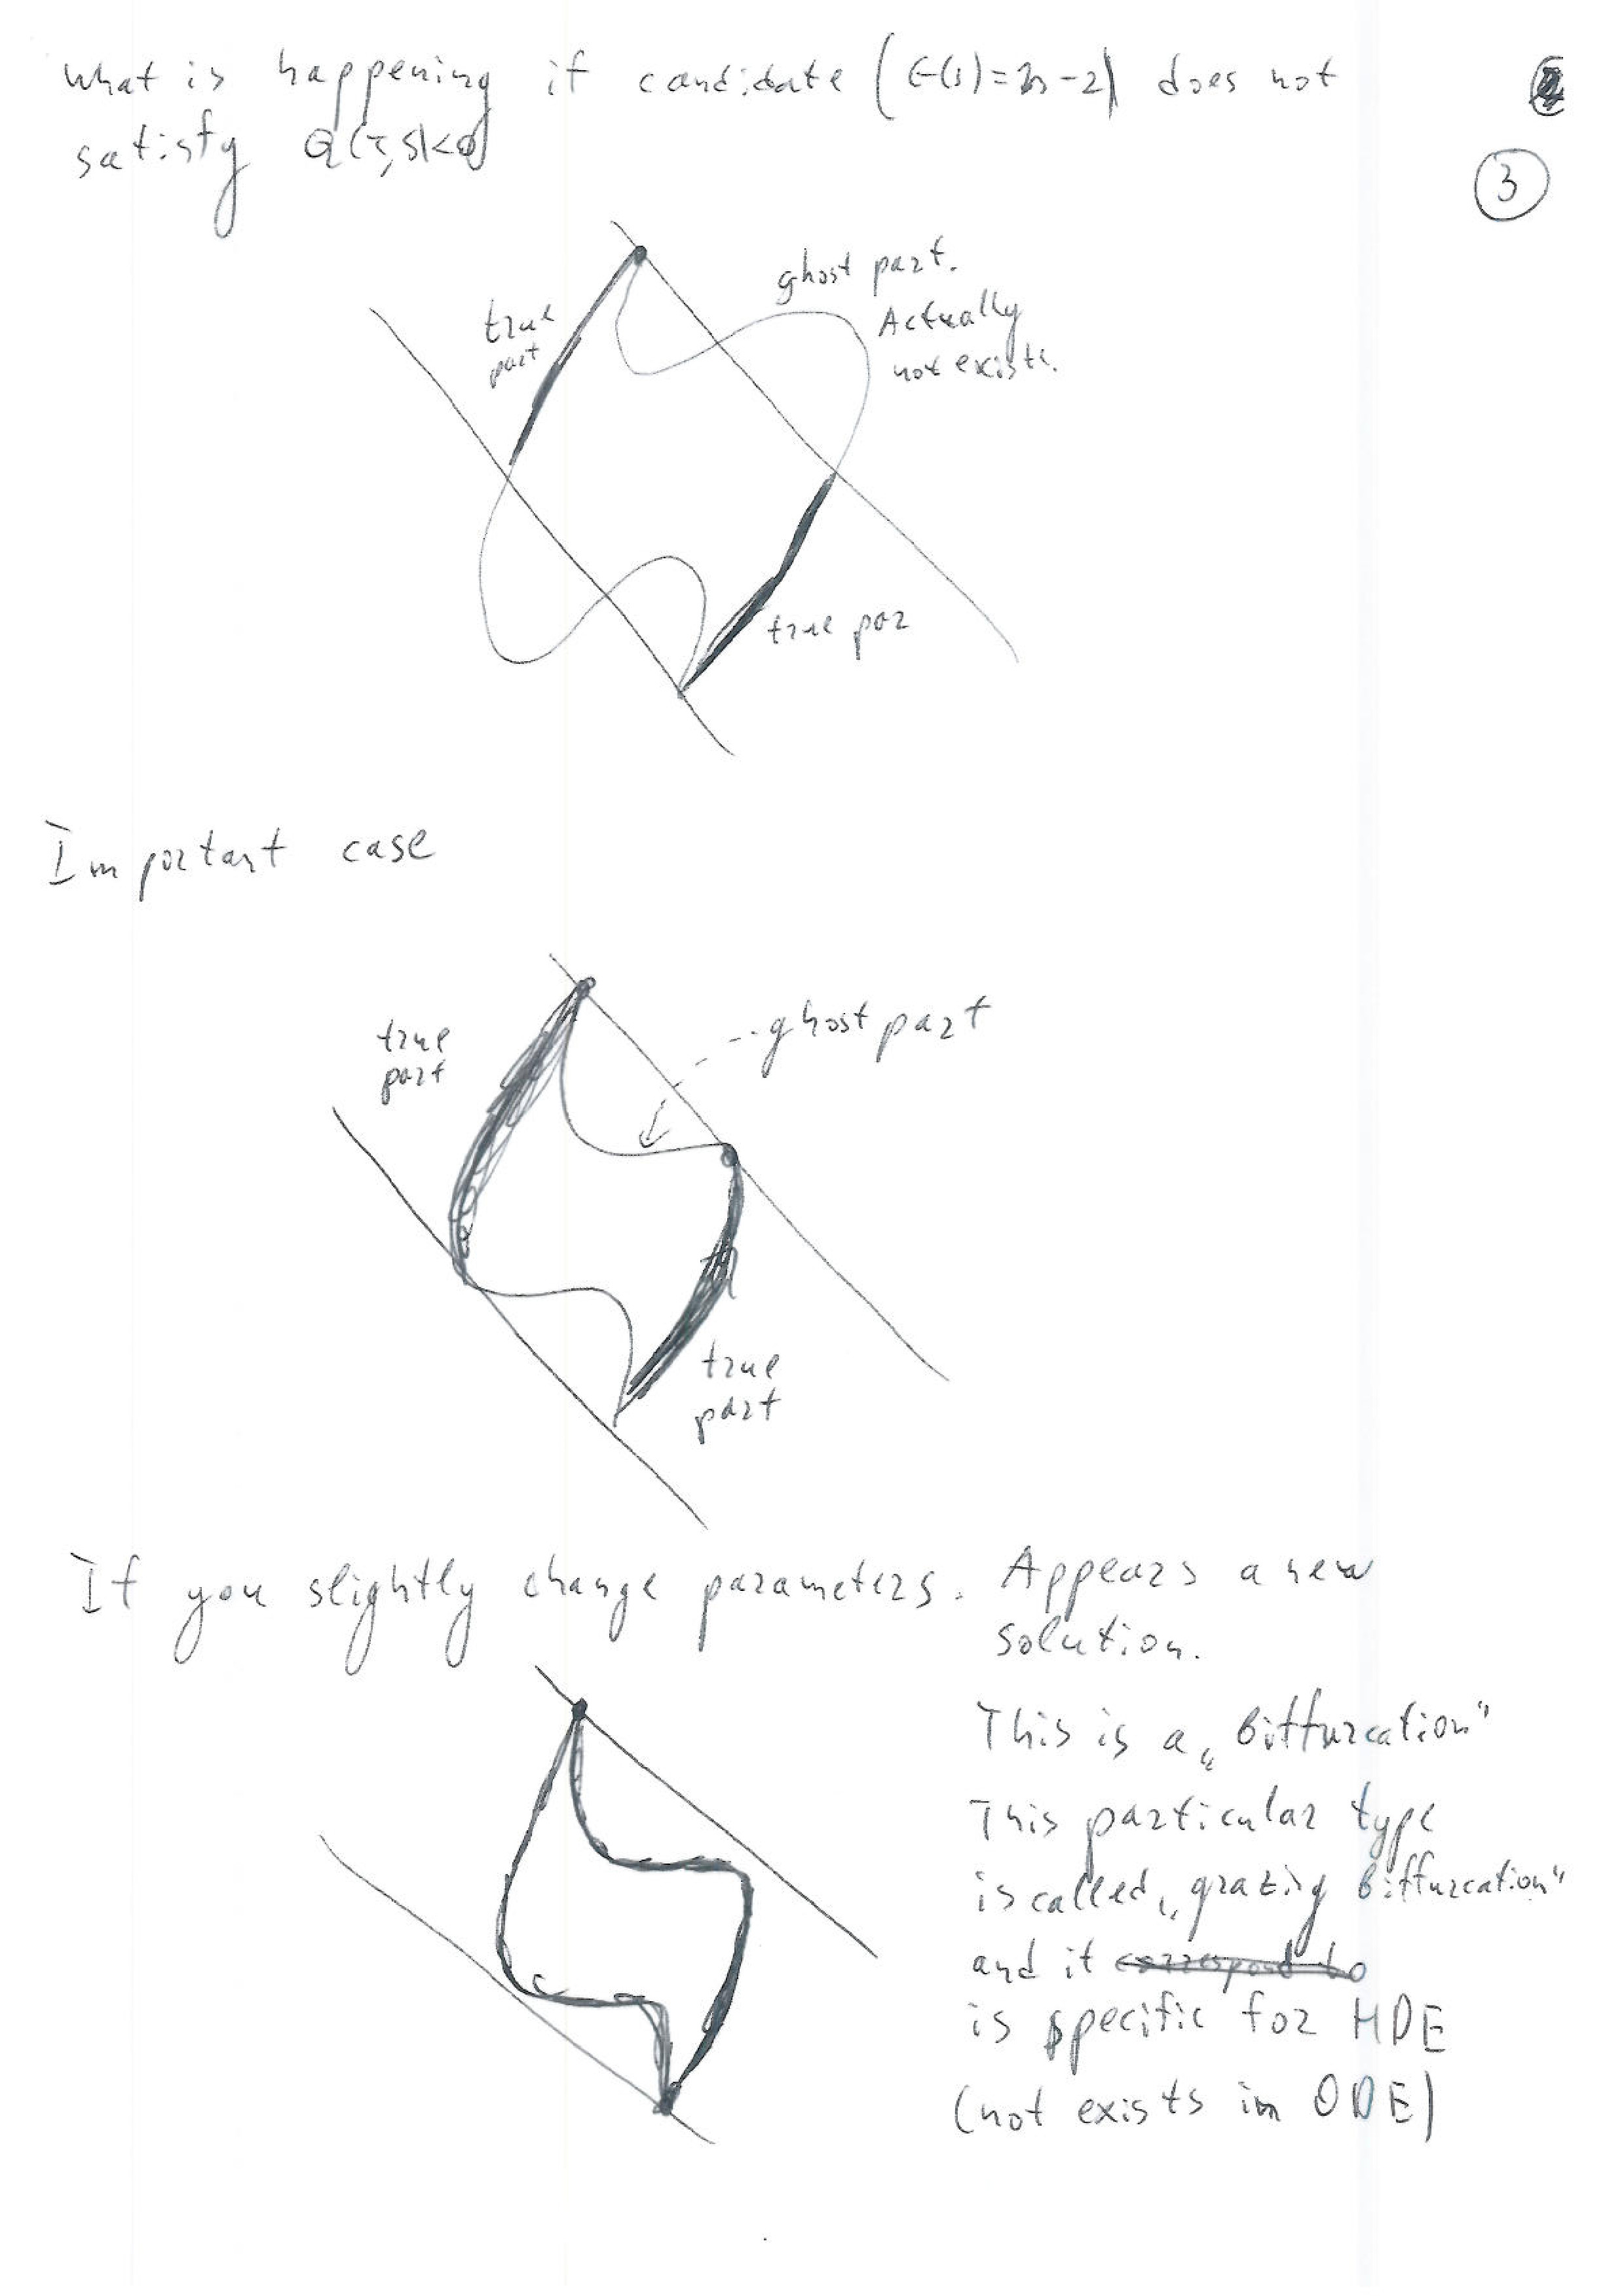 What is happening if candidate (E(s)=2s-2) does not
satisfy Q(τ,s)<0
3
ghost part.
Actually
not exists.
true
part
true par
Important case
ghost part
true
part
true
part
If you slightly change parameters. Appears a new
solution.
This is a „Biffurcation"
This particular type
is called „grazing biffurcation"
and it correspond to
is specific for HDE
(not exists in ODE)